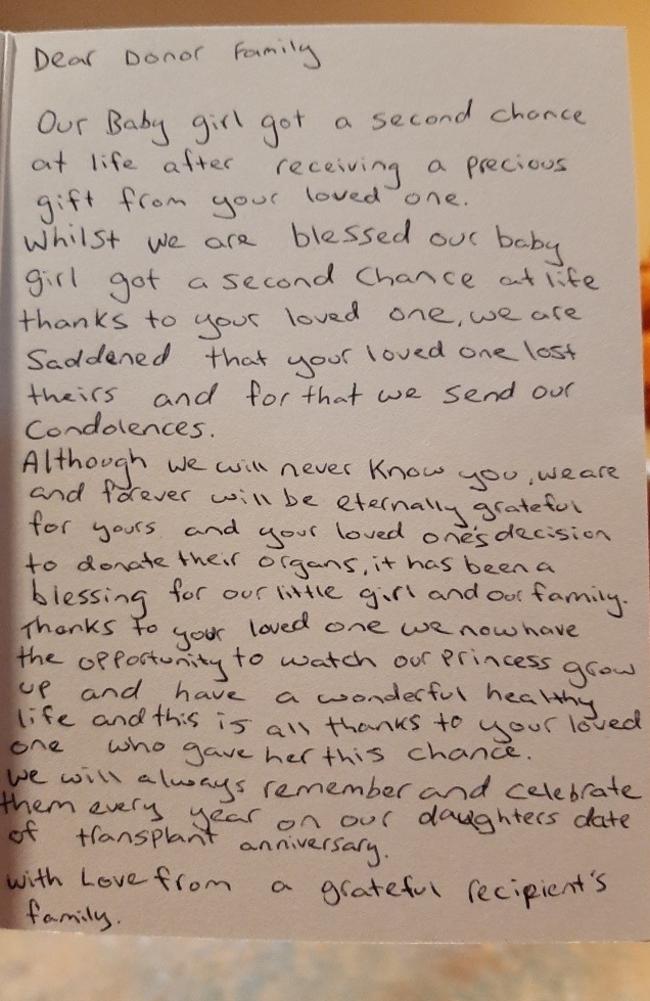 Dear Donor Family
Our Baby girl got a second chance
at life after receiving a precious
gift from your loved one.
Whilst we are blessed our baby
girl got a second Chance at life
thanks to your loved one, we are
Saddened that your loved one lost
theirs and for that we send our
Condolences.
Although we will never know you, we are
and forever will be eternally grateful
for yours and your loved one's decision
to donate their organs, it has been a
blessing for our little girl and our family.
Thanks to your loved one we now have
the opportunity to watch our princess grow
up and have a wonderful healthy
life and this is all thanks to your loved
one who gave her this chance.
We will always remember and celebrate
them every year on our daughters date
of transplant anniversary.
With Love from a grateful recipient's
family.